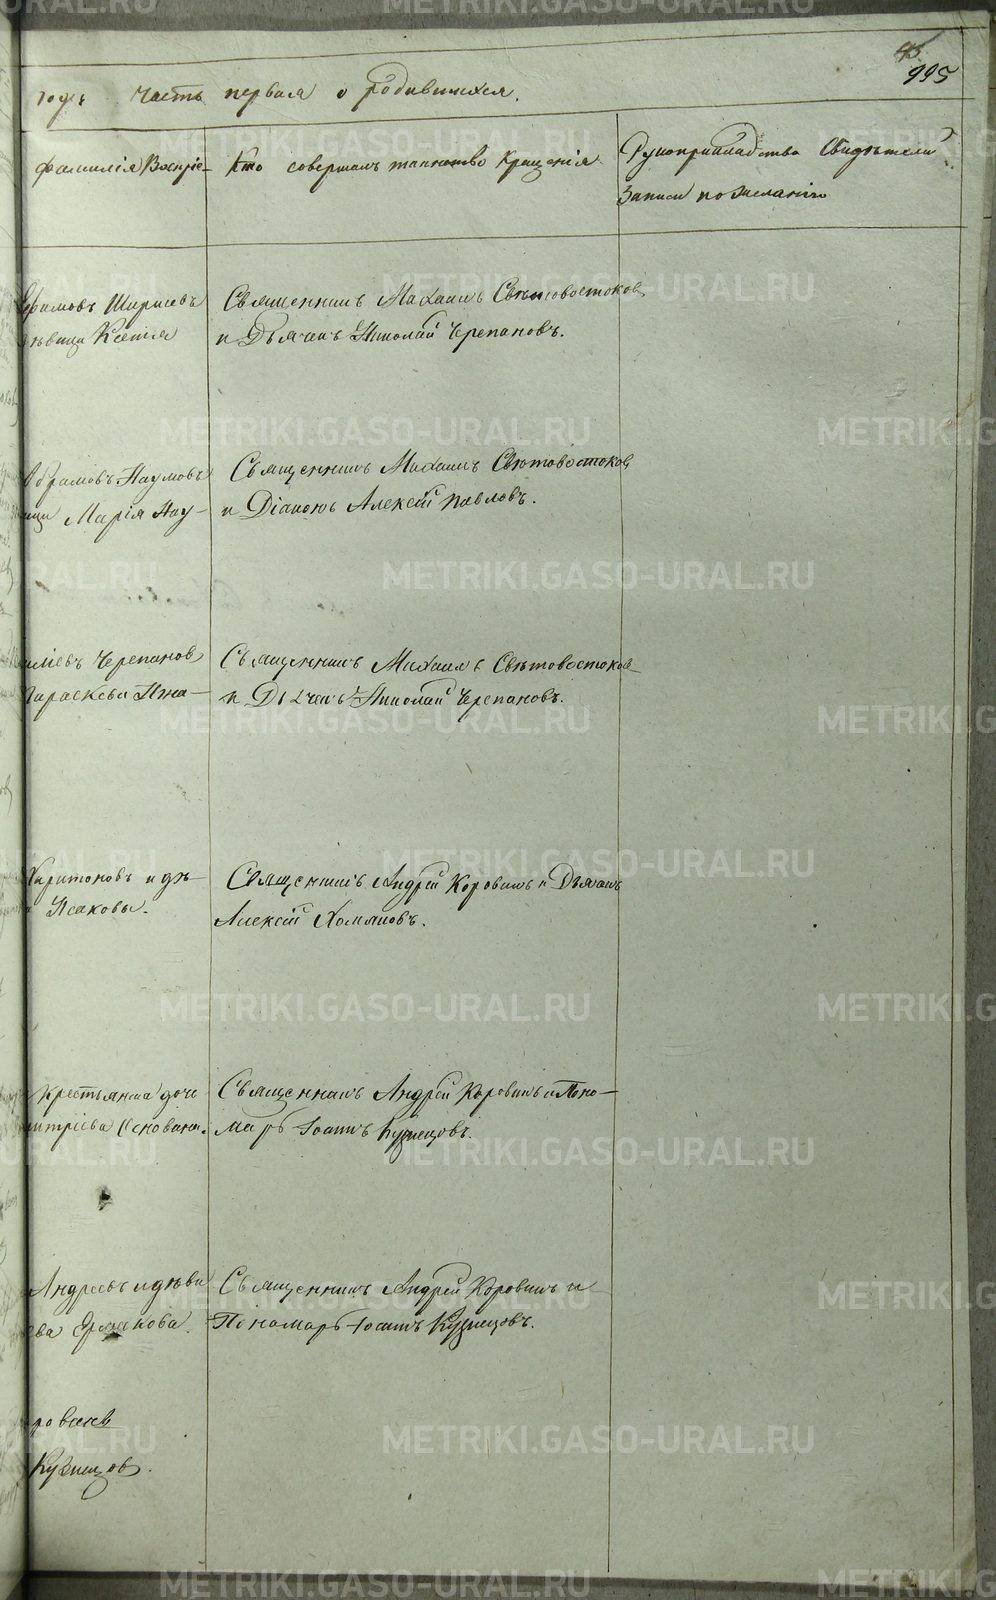 995
года Часть первая о родившихся.
фамилія Воспріе-
Кто совершалъ таинство Крещенія
Рукоприкладство Свидѣтелей
Записи по желанію
Ширяевъ
Ксенія
Священникъ Михаилъ Свѣтовостоковъ
и Дьячекъ Николай Черепановъ.
Абрамовъ Наумовъ
Марія Нау-
Священникъ Михаилъ Свѣтовостоковъ
и Діаконъ Алексѣй Павловъ.
Черепановъ
Параскева
Священникъ Михаилъ Свѣтовостоковъ
и Дьячекъ Николай Черепановъ.
Харитоновъ и дѣ-
Исакова.
Священникъ Андрей Коровинъ и Дьячекъ
Алексѣй Хомяковъ.
крестьянка дочь
Священникъ Андрей Коровинъ и Поно-
марь Іоаннъ Кузнецовъ.
Андреевъ и дѣви
ева Ермакова.
Священникъ Андрей Коровинъ и
Пономарь Іоаннъ Кузнецовъ.
ровинъ
Кузнецовъ.
METRIKI.GASO-URAL.RU